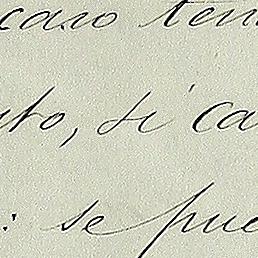 caso ten
to, si ca
: se pue